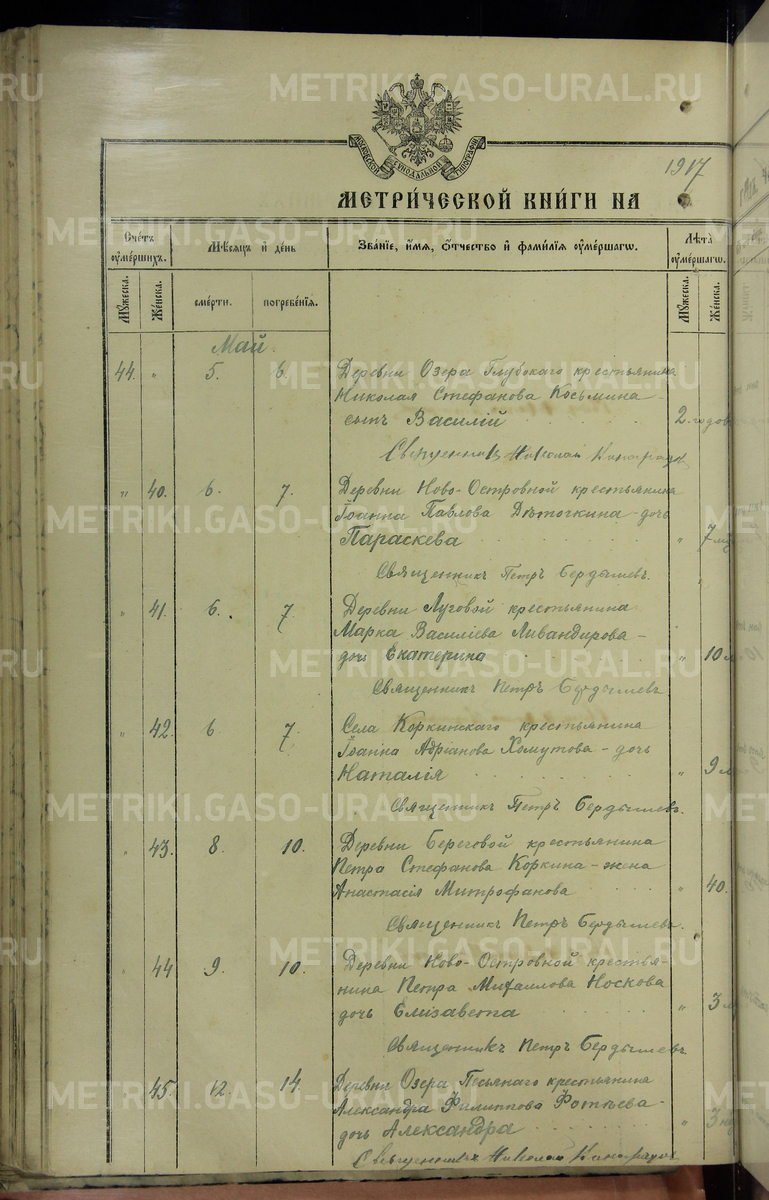 METRIKI.GASO-URAL.RU
МОСКОВСКОЙ СУНОДАЛЬНОЙ ТИПОГРАФІИ
1917
МЕТРИ́ЧЕСКОЙ КНИ́ГИ НА
Сче́тъ оуме́ршихъ.
Мѣ́сяцъ и҆ де́нь
Зва́нїе, и҆́мя, ѻ҆́тчество и҆ фами́лїя оуме́ршагѡ.
Лѣ́та оуме́ршагѡ.
Мꙋ́жеска.
Же́нска.
сме́рти.
погребе́нїя.
Мꙋ́жеска.
Же́нска.
Май.
44. " 5. 6. Деревни Озера Глубокаго крестьянина
Николая Стефанова Косьмина -
сынъ Василій 2. годовъ
Священникъ Николай
" 40. 6. 7. Деревни Ново-Островной крестьянина
Іоанна Павлова Дѣточкина дочь
Параскева " 7
Священникъ Петръ Бердышевъ.
" 41. 6. 7 Деревни Луговой крестьянина
Марка Василіева Ливандирова -
дочь Екатерина " 10
Священникъ Петръ Бердышевъ
" 42. 6. 7. Села Коркинскаго крестьянина
Іоанна Адріанова Хомутова - дочь
Наталія " 9
Священникъ Петръ Бердышевъ.
" 43. 8. 10. Деревни Береговой крестьянина
Петра Стефанова Коркина - жена
Анастасія Митрофанова " 40.
Священникъ Петръ Бердышевъ.
" 44 9. 10. Деревни Ново-Островной крестья-
нина Петра Михаилова Носкова
дочь Елизавета " 3
Священникъ Петръ Бердышевъ
45. 12. 14. Деревни Озера Песьянаго крестьянина
Александра Филиппова Фотѣева -
дочь Александра " 3
Священникъ Николай